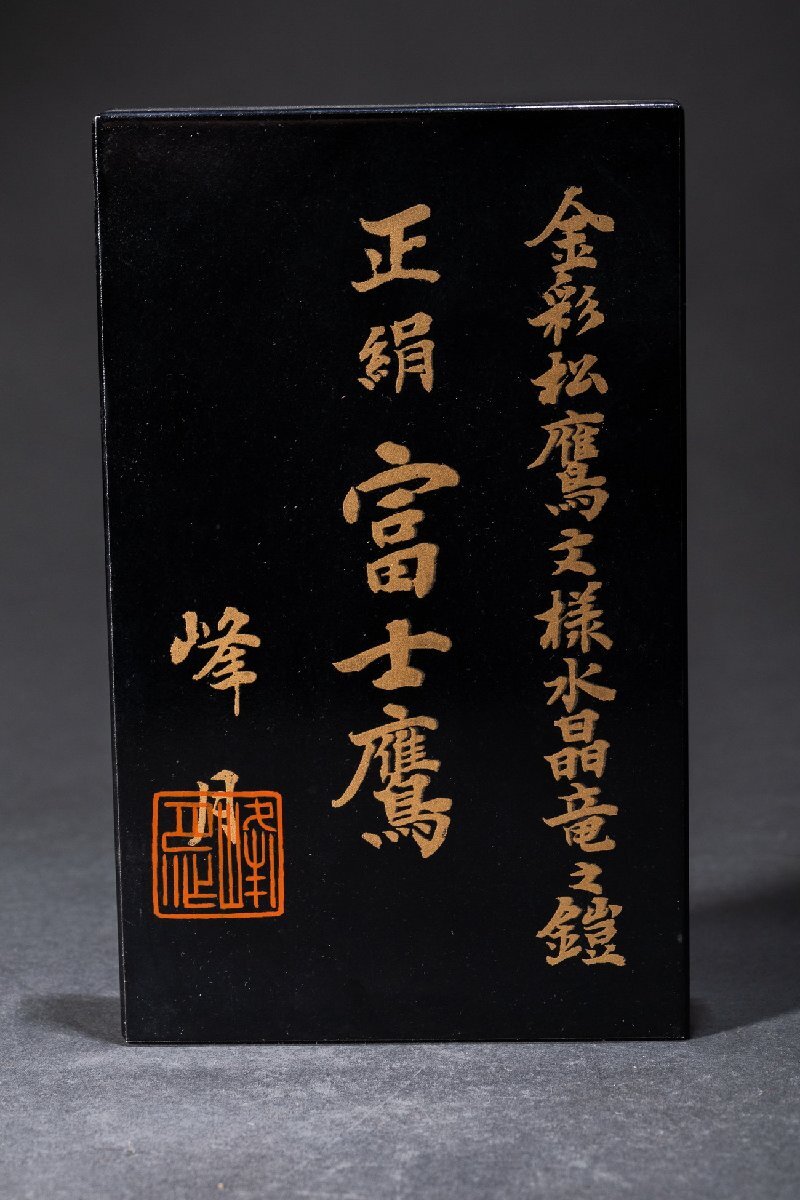 金彩松鷹文様水晶竜之鎧
正絹 富士鷹
峰月